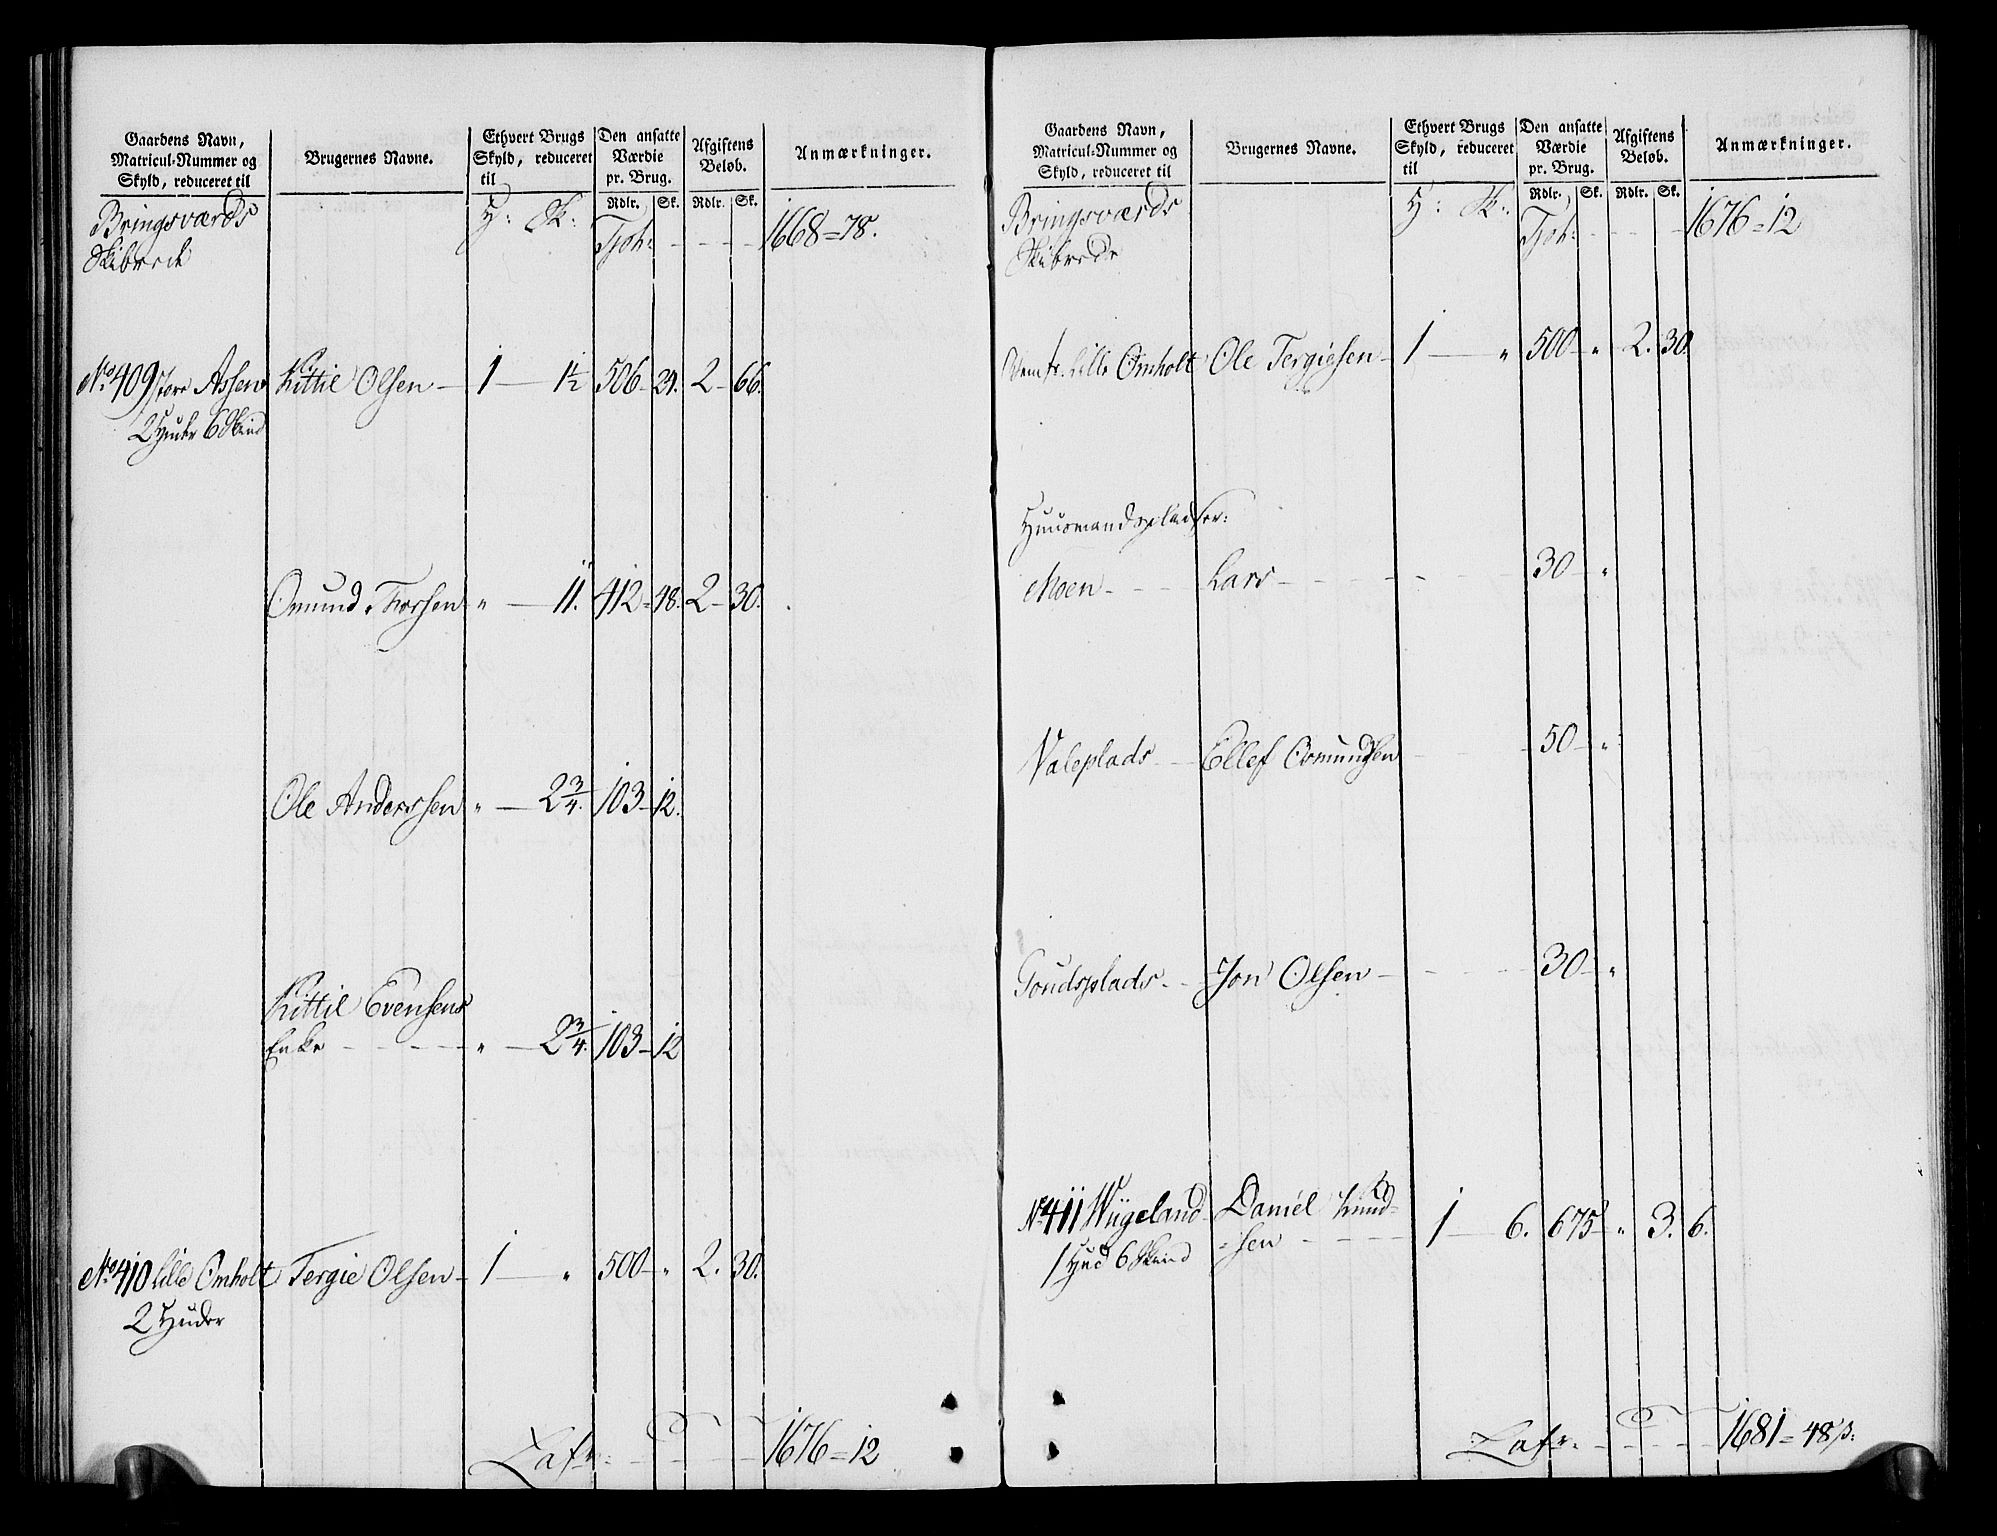 Gaardens Navn,
Matricul-Nummer og
Skyld, reduceret til
Brugernes Navne.
Ethvert Brugs
Skyld, reduceret
til
Den ansatte
Værdie
pr. Brug.
Rdlr. Sk.
Afgiftens
Beløb.
Rdlr. Sk.
Anmærkninger.
Bringsværds H: Sk:
Skibrede
Tssh: - - - - 1668=78.
No 409 store Assen Kittil Olsen - 1 - 1½ 506 - 24. 2 - 66.
2 Huder 6 Skind
Omund Torsen " - 11. 412 = 48. 2 - 30.
Ole Anderssen " - 2¾. 103 - 12.
Kittil Evensens
Enke - - - - " - 2¾. 103 - 12
No 410 Lille Omholt Tergie Olsen - 1 - " 500 - " 2. 30.
2 Huder
Lafr: - - - 1676=12
Gaardens Navn,
Matricul-Nummer og
Skyld, reduceret til
Brugernes Navne.
Ethvert Brugs
Skyld, reduceret
til
Den ansatte
Værdie
pr. Brug.
Rdlr. Sk.
Afgiftens
Beløb.
Rdlr. Sk.
Anmærkninger.
Bringsværds H: Sk:
Skibrede
- - - - 1676=12
Lille Omholt Ole Tergiesen - 1 - " 500 - " 2. 30.
Huusmandspladser:
Moen - - - Lars - - - - - 30 - "
Valeplads - - Ellef Osmundsen - - 50 - "
Joudsplads - - Jon Olsen - - - 30 - "
No 411 Wiigeland Daniel Knud=
=sen - - - - 1 - 6. 675 - " 3. 6.
1 Hud 6 Skind
Lafr. - - - - 1681=48ß: